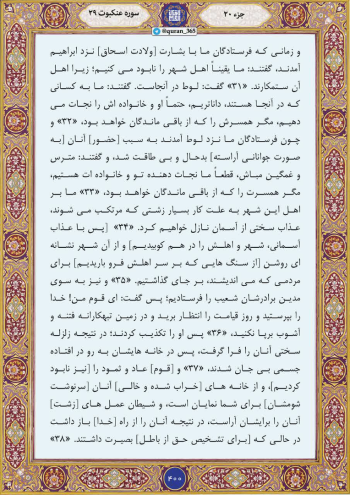 سوره عنکبوت ۲۹
جزء ۲۰
@quran_365
و زمانی که فرستادگان ما با بشارت [ولادت اسحاق] نزد ابراهیم
آمدند، گفتند: ما یقیناً اهل شهر را نابود می کنیم؛ زیرا اهل
آن ستمکارند. «۳۱» گفت: لوط در آنجاست. گفتند: ما به کسانی
که در آنجا هستند، داناتریم، حتماً او و خانواده اش را نجات می
دهیم، مگر همسرش را که از باقی ماندگان خواهد بود، «۳۲» و
چون فرستادگان ما نزد لوط آمدند به سبب [حضور] آنان [به
صورت جوانانی آراسته] بدحال و بی طاقت شد، و گفتند: مترس
و غمگین مباش، قطعاً ما نجات دهنده تو و خانواده ات هستیم،
مگر همسرت را که از باقی ماندگان خواهد بود، «۳۳» ما بر
اهل این شهر به علت کار بسیار زشتی که مرتکب می شوند،
عذاب سختی از آسمان نازل خواهیم کرد. «۳۴» [پس با عذاب
آسمانی، شهر و اهلش را در هم کوبیدیم] و از آن شهر نشانه
ای روشن [از سنگ هایی که بر سر اهلش فرو باریدیم] برای
مردمی که می اندیشند، بر جای گذاشتیم. «۳۵» و نیز به سوی
مدین برادرشان شعیب را فرستادیم؛ پس گفت: ای قوم من! خدا
را بپرستید و روز قیامت را انتظار برید و در زمین تبهکارانه فتنه و
آشوب برپا نکنید، «۳۶» پس او را تکذیب کردند؛ در نتیجه زلزله
سختی آنان را فرا گرفت، پس در خانه هایشان به رو در افتاده
جسمی بی جان شدند، «۳۷» و [قوم] عاد و ثمود را [نیز نابود
کردیم]، و از خانه های [خراب شده و خالی] آنان [سرنوشت
شومشان] برای شما نمایان است، و شیطان عمل های [زشت]
آنان را برایشان آراست، در نتیجه آنان را از راه [خدا] باز داشت
در حالی که [برای تشخیص حق از باطل] بصیرت داشتند. «۳۸»
۴۰۰